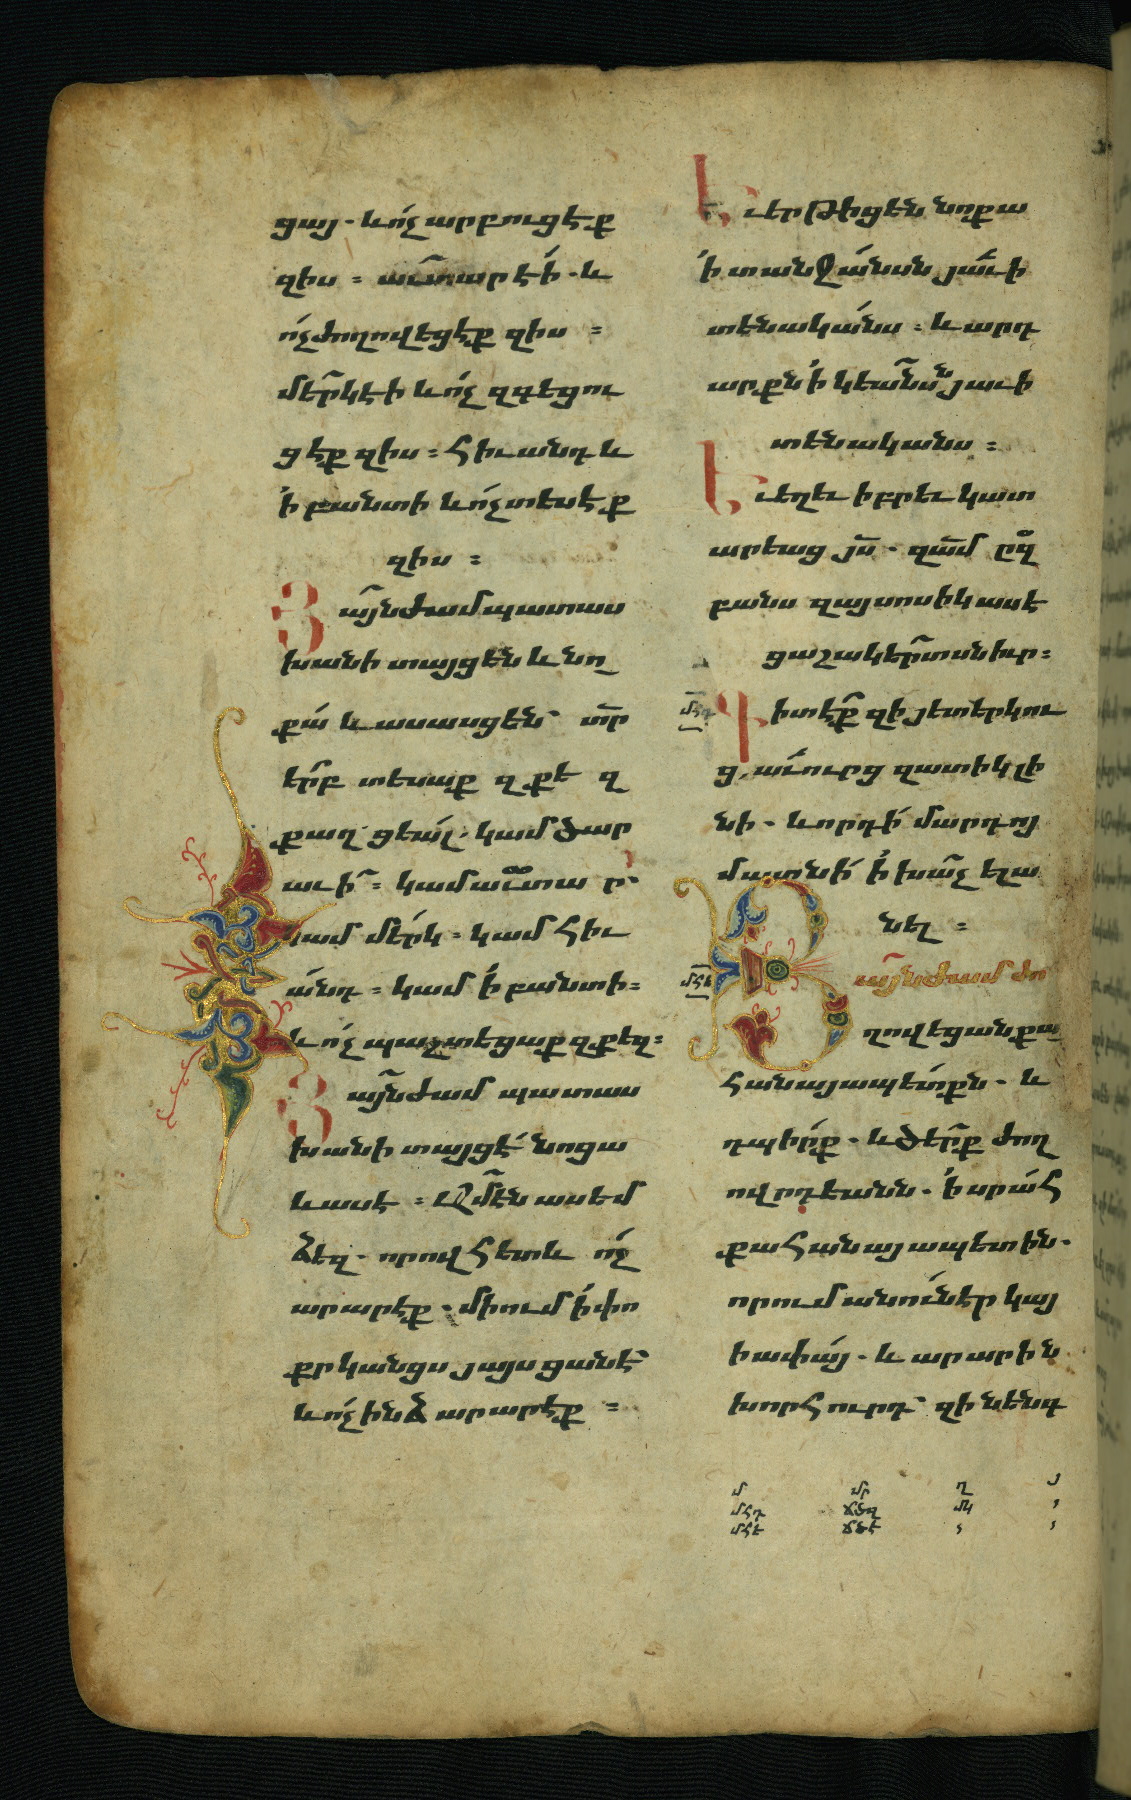 ցայ. և ոչ արբուցէք
զիս ։ աւտար էի. և
ոչ ժողովեցէք զիս ։
մերկ էի և ոչ զգեցու
ցէք զիս ։ հիւանդ և
ի բանտի և ոչ տեսէք
զիս ։
Յայնժամ պատաս
խանի տայցեն և նո
քա և ասասցեն՝ տր
երբ տեսաք զքե զ
քաղցեալ. կամ ծար
աւի ։ կամ աւտա ր՝
կամ մերկ ։ կամ հիւ
անդ ։ կամ ի բանտի ։
և ոչ պաշտեցաք զքեզ ։
Յայնժամ պատաս
խանի տայցէ նոցա
և ասէ ։ Ամեն ասեմ
ձեզ. որովհետև ոչ
արարէք. միում ի փո
քրկանցս յայսցանէ՝
և ոչ ինձ արարէք ։
Եւ երթիցեն նոքա
ի տանջանսն յաւի
տենականս ։ և արդ
արքն ի կեանսն յաւի
տենականս ։
Եւ եղև իբրև կատ
արեաց յս. զամ ըզ
բանս զայսոսիկ ասէ
ցաշակերտսն իւր ։
մհդ
Գիտէք զի յետ երկու
ց աւուրց զատիկ լի
նի. և որդի մարդոյ
մատնի ի խաչ ելա
նել ։
մհե
Յայնժամ ժո
ղովեցան քա
հանայապետքն. և
դպիրք. և ծերք ժող
ովրդեանն. ի սրահ
քահանայապետին.
որում անուն էր կայ
իափայ. և արարին
խորհուրդ՝ զի նենգ
մ մր ղ յ
մհդ ճծզ մկ ,
մհե ճծէ , ,